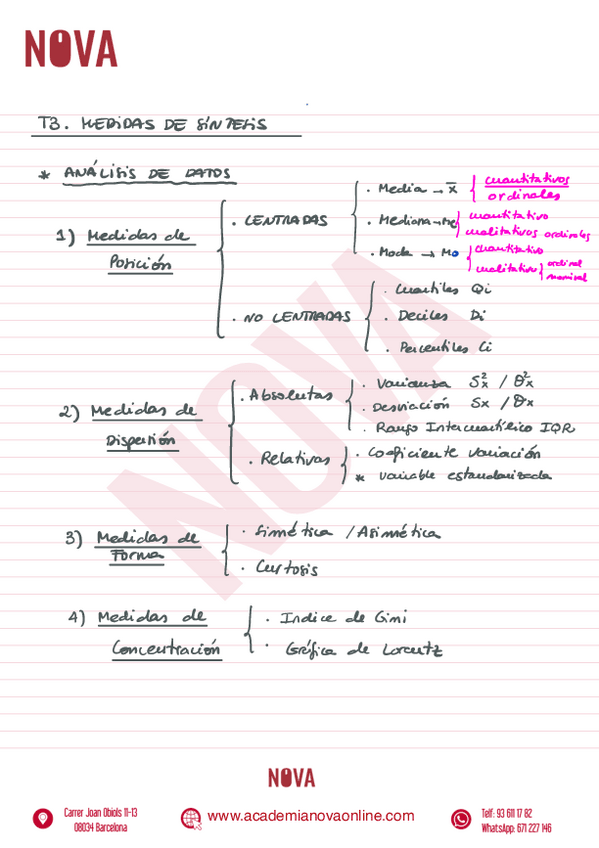 NOVA
T3. MEDIDAS DE SÍNTESIS
* ANÁLISIS DE DATOS
1) Medidas de Posición
. CENTRADAS
. Media → x̄ { cuantitativos ordinales
. Mediana → Me { cuantitativo cualitativos ordinales
. Moda → Mo { cuantitativo cualitativo { ordinal nominal
. NO CENTRADAS
. Cuartiles Qi
. Deciles Di
. Percentiles Ci
2) Medidas de Dispersión
. Absolutas
. Varianza S²x / σ²x
. Desviación Sx / σx
. Rango Intercuartílico IQR
. Relativas
. Coeficiente variación
* variable estandarizada
3) Medidas de Forma
. Simética / Asimética
. Curtosis
4) Medidas de Concentración
. Indice de Gini
. Gráfica de Lorentz
NOVA
NOVA
Carrer Joan Obiols 11-13
08034 Barcelona
www.academianovaonline.com
Telf: 93 611 17 82
WhatsApp: 671 227 146